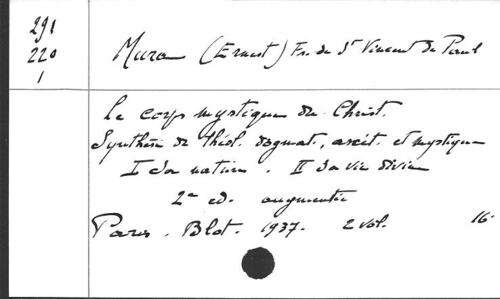 291
220
1
Mura (Ernest) Fr. de St Vincent de Paul
Le corps mystique du Christ.
Synthèse de théol. dogmat., ascét. et mystique
I Sa nature. II Sa vie divine
2e ed. augmentée
Paris. Blot. 1937. 2 vol. 16°